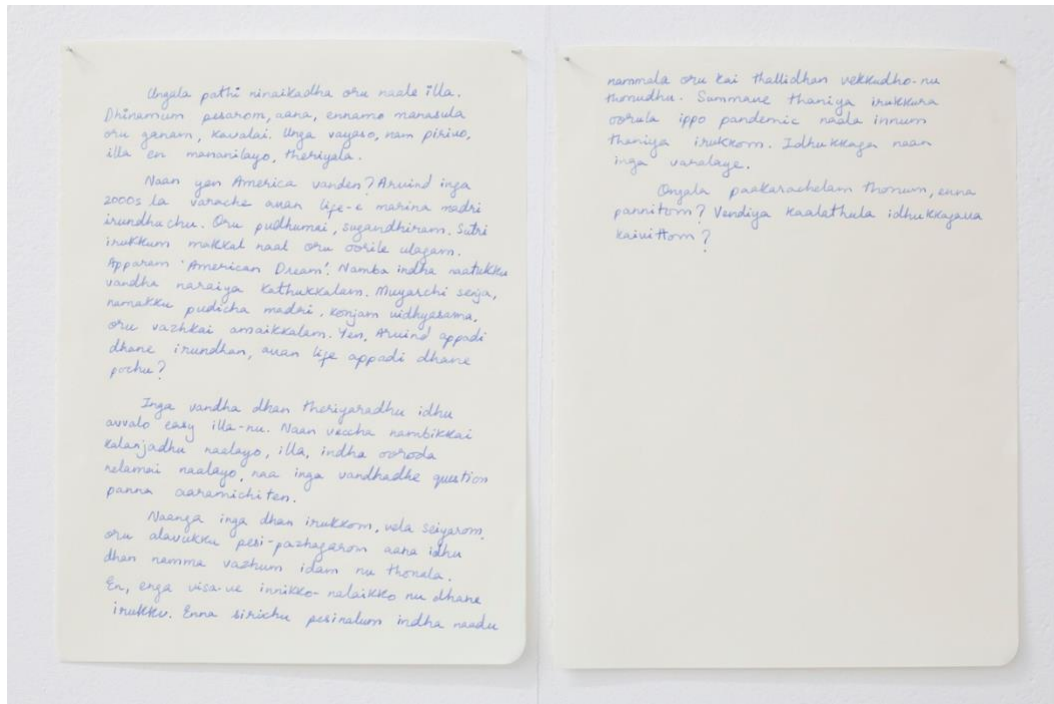 Ungala pathi ninaikadha oru naale illa.
Dhinamum pesarom, aana, ennamo manasula
oru ganam, kavalai. Unga vayaso, nam pirivo,
illa en mananilayo, theriyala.
Naan yen America vanden? Arvind inga
2000s la varache avan life-e marina madri
irundhachu. Oru pudhumai, sugandhiram. Sutri
irukkum makkal naal oru oorile ulagam.
Apparam 'American Dream'. Namba indha naatukku
vandha naraiya kathukkalam. Muyarchi senja,
namakku pudicha madri, konjam vidhyasama,
oru vazhkai amaikkalam. Yen, Arvind appadi
dhane irundhan, avan life appadi dhane
pochu?
Inga vandha dhan theriyaradhu idhu
avvalo easy illa-nu. Naan veccha nambikkai
kalanjadhu naalayo, illa, indha ooroda
nelamai naalayo, naa inga vandhadhe question
panna aaramichiten.
Naanga inga dhan irukkom, vela seiyarom,
oru alavukku pesi-pazhagarom aana idhu
dhan namma vazhum idam nu thonala.
En, enga visa-ve innikko-nalaikko nu dhane
irukku. Enna sirichu pesinalum indha naadu
nammala oru kai thallidhan vekkudho-nu
thonudhu. Summave thaniya irukkura
oorula ippo pandemic naala innum
thaniya irukkom. Idhukkaga naan
inga varalaye.
Ongala paakarachelam thonum, enna
pannitom? Vendiya kaalathula idhukkagava
kaivittom?